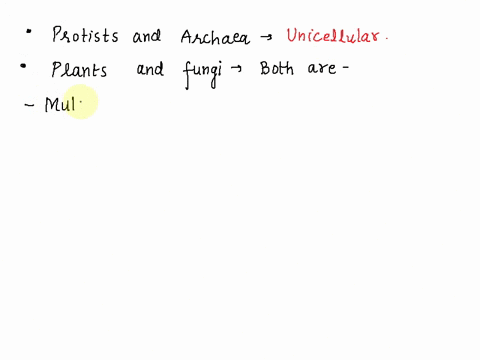 • Protists and Archaea → Unicellular.
• Plants and fungi → Both are -
- Mul